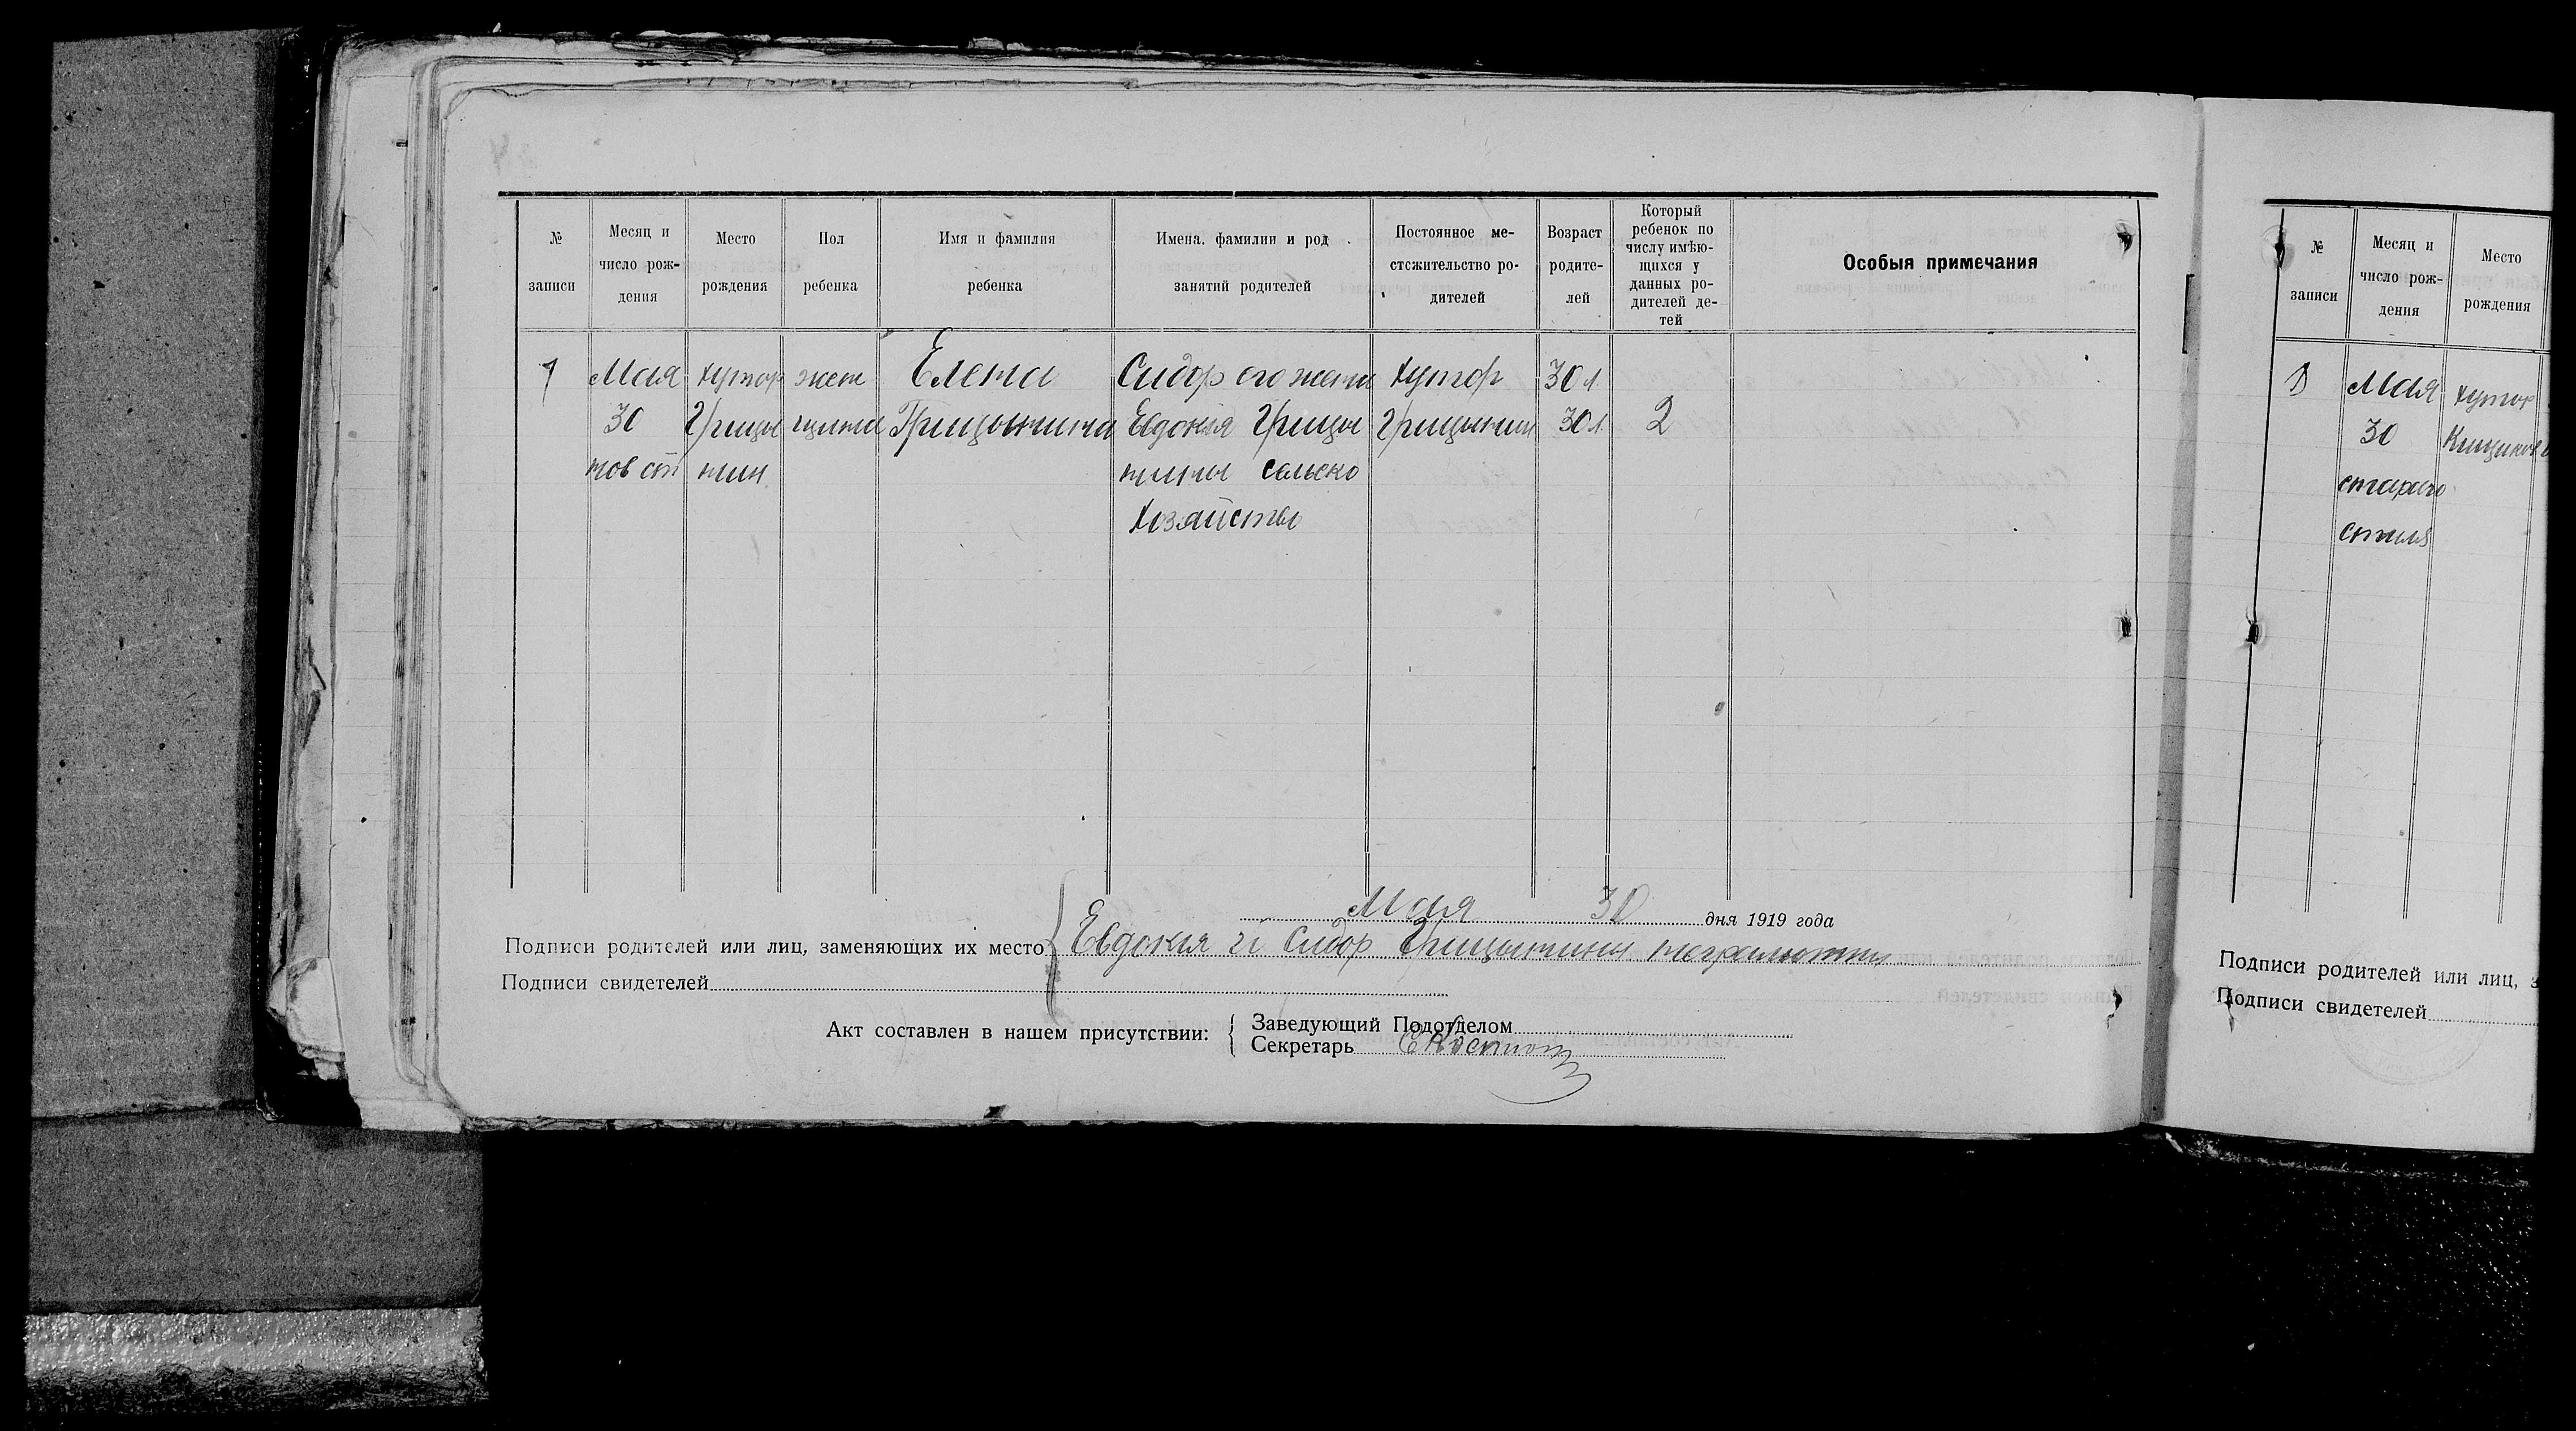 № записи
Месяц и число рож-дения
Место рождения
Пол ребенка
Имя и фамилия ребенка
Имена. фамилии и род занятий родителей
Постоянное ме-стожительство ро-дителей
Возраст родите-лей
Который ребенок по числу имѣю-щихся у данных ро-дителей де-тей
Особыя примечания
7
Мая
30
нов ст
хутор
Грицы
нин
жен
щина
Елена
Грицынина
Сидор его жена
Евдокия Грицы
нины сельско
хозяйство
хутор
Грицынин
30 л
30 л
2
Мая 30 дня 1919 года
Подписи родителей или лиц, заменяющих их место Евдокия и Сидор Грицынины неграмотны
Подписи свидетелей
Акт составлен в нашем присутствии:
Заведующий Подотделом
Секретарь
№ записи
Месяц и число рож-дения
Место рождения
8
Мая
30
стараго
стиля
хутор
Подписи родителей или лиц, з
Подписи свидетелей